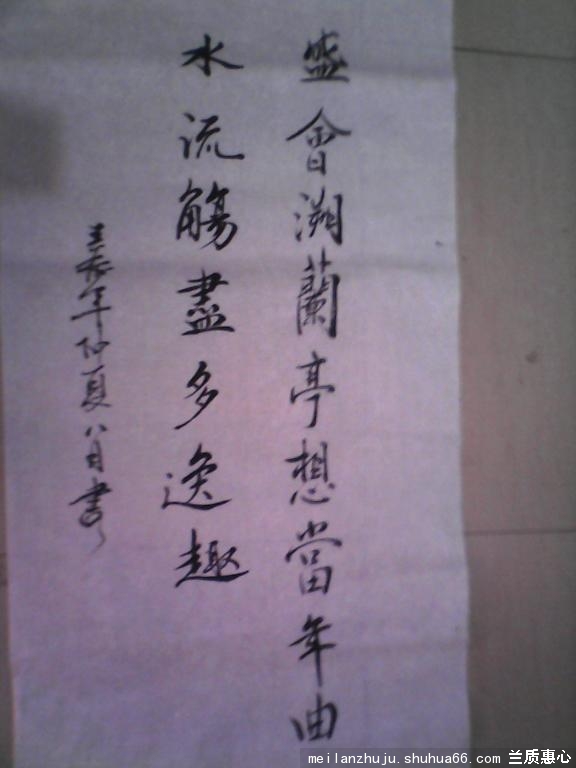 盛會溯蘭亭想當年曲
水流觴盡多逸趣
年仲夏八月書
meilanzhuju.shuhua66.com 兰质惠心